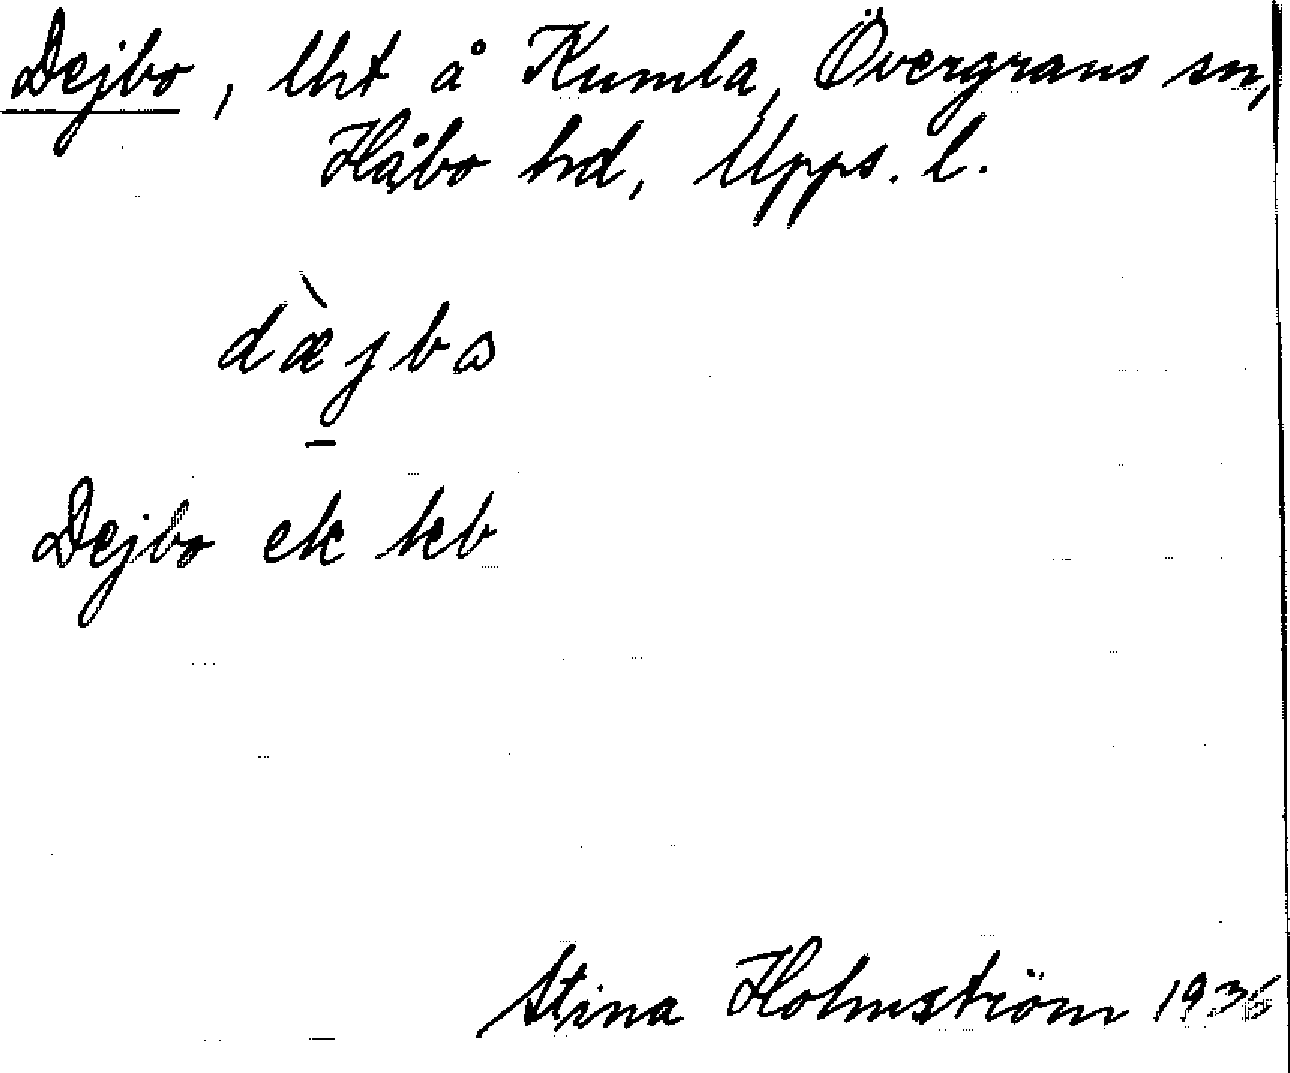 Dejbo, lht å Kumla, Övergrans sn,
Håbo hd, Upps. l.
dæ̀jbɷ
Dejbo ek kb
Stina Holmström 1936